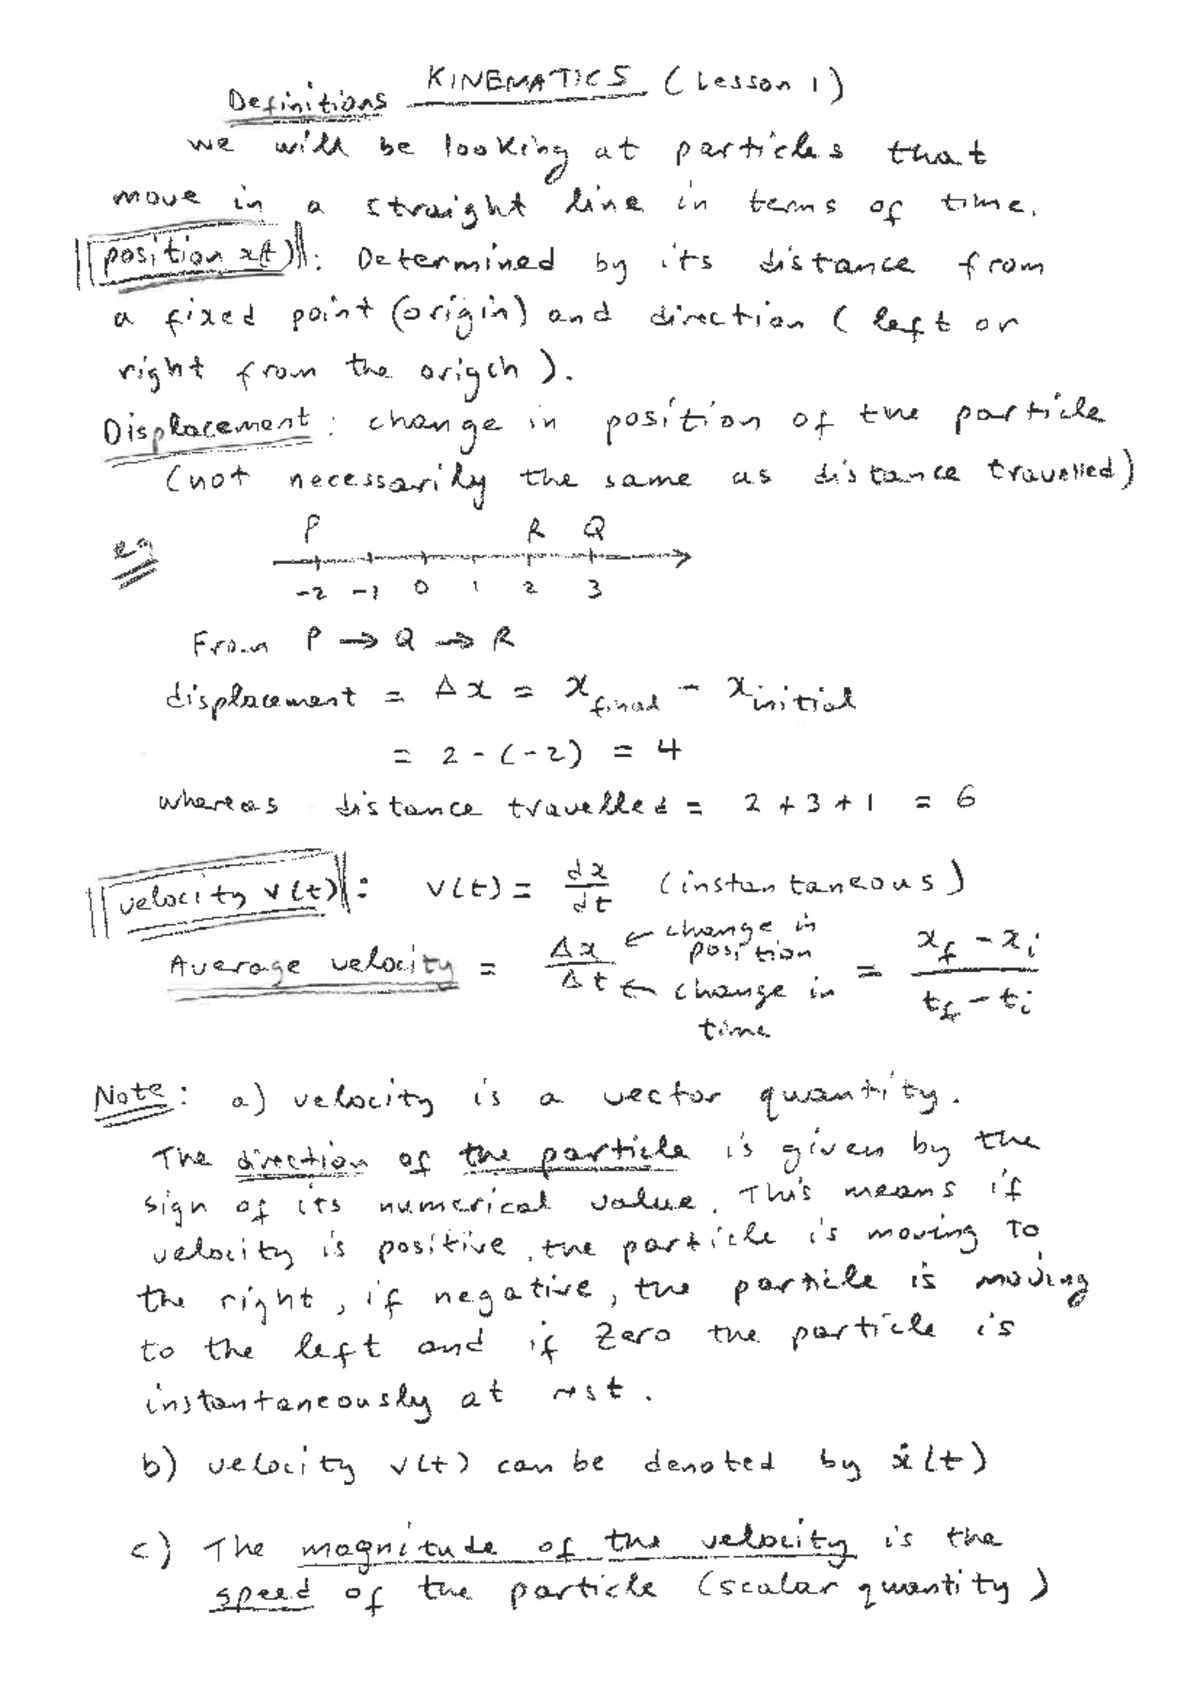 KINEMATICS (Lesson 1)
Definitions
we will be looking at particles that
move in a straight line in terms of time.
position x(t): Determined by its distance from
a fixed point (origin) and direction (left or
right from the origin).
Displacement: change in position of the particle
(not necessarily the same as distance travelled)
eg P R Q
-2 -1 0 1 2 3
From P → Q → R
displacement = Δx = x_final - x_initial
= 2 - (-2) = 4
whereas distance travelled = 2 + 3 + 1 = 6
velocity v(t): v(t) = dx/dt (instantaneous)
Average velocity = Δx/Δt ← change in position ← change in time = (x_f - x_i)/(t_f - t_i)
Note: a) velocity is a vector quantity.
The direction of the particle is given by the
sign of its numerical value. This means if
velocity is positive, the particle is moving to
the right, if negative, the particle is moving
to the left and if zero the particle is
instantaneously at rest.
b) velocity v(t) can be denoted by ẋ(t)
c) The magnitude of the velocity is the
speed of the particle (scalar quantity)